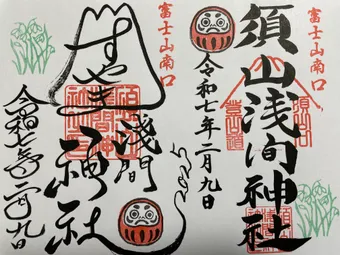 富士山南口
須山浅间神社
令和七年二月九日
富士山南口
すやま
浅間
神社
令和七年二月九日
2025